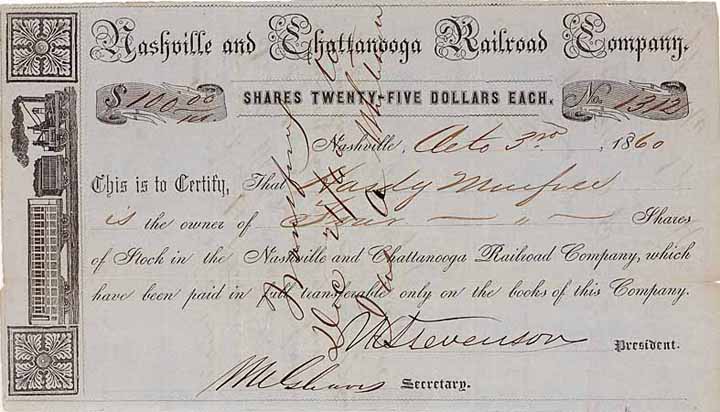 Nashville and Chattanooga Railroad Company.
$ 100.00 SHARES TWENTY-FIVE DOLLARS EACH. No. 1312
Nashville, Octo 3rd, 1860
This is to Certify, That Hardy Murfree
is the owner of Four — " — Shares
of Stock in the Nashville and Chattanooga Railroad Company, which
have been paid in full transferable only on the books of this Company.
VK Stevenson President.
Secretary.
Transferred to
Dec